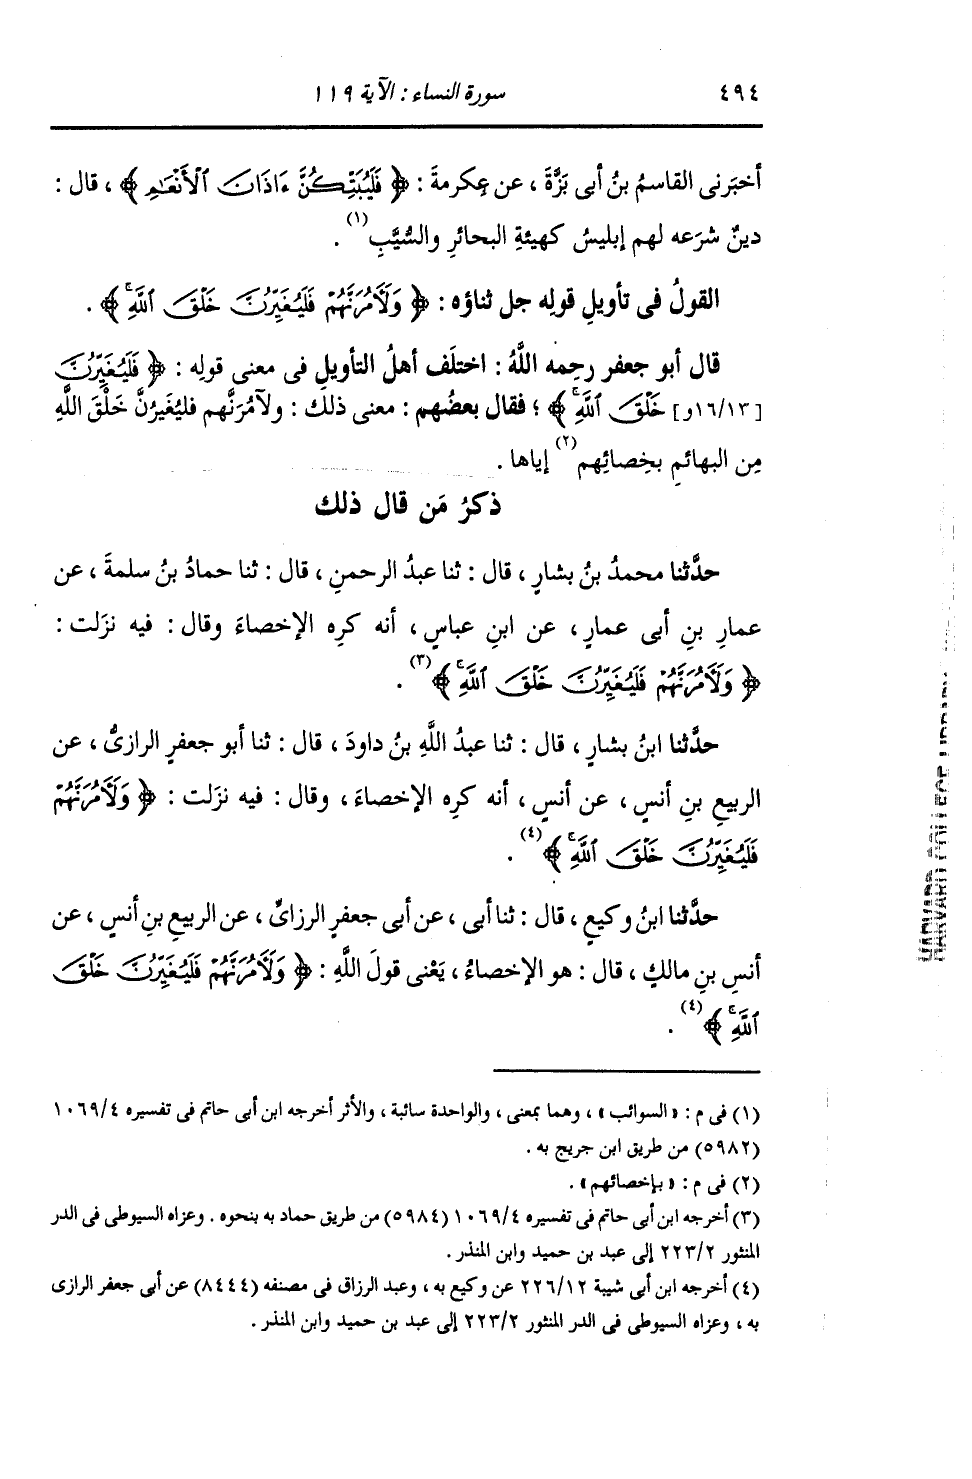 ٤٩٤ سورة النساء : الآية ١١٩
أخبَرنى القاسمُ بنُ أبى بَزَّةَ ، عن عِكرمةَ : ﴿ فَلَيُبَتِّكُنَّ ءَاذَانَ ٱلْأَنْعَٰمِ ﴾ ، قال :
دينٌ شرَعه لهم إبليسُ كهيئةِ البحائرِ والسُّيَّبِ(١) .
القولُ فى تأويلِ قولِه جل ثناؤه : ﴿ وَلَآمُرَنَّهُمْ فَلَيُغَيِّرُنَّ خَلْقَ ٱللَّهِ ۚ ﴾ .
قال أبو جعفر رحِمه اللَّهُ : اختلَف أهلُ التأويلِ فى معنى قولِه : ﴿ فَلَيُغَيِّرُنَّ
[١٦/١٣و] خَلْقَ ٱللَّهِ ۚ ﴾ ؛ فقال بعضُهم : معنى ذلك : ولآمُرَنَّهم فليُغَيرُنَّ خَلْقَ اللَّهِ
مِن البهائمِ بخِصائِهم(٢) إياها .
ذكرُ مَن قال ذلك
حدَّثنا محمدُ بنُ بشارٍ ، قال : ثنا عبدُ الرحمنِ ، قال : ثنا حمادُ بنُ سلمةَ ، عن
عمارِ بنِ أبى عمارٍ ، عن ابنِ عباسٍ ، أنه كرِه الإخصاءَ وقال : فيه نزَلت :
﴿ وَلَآمُرَنَّهُمْ فَلَيُغَيِّرُنَّ خَلْقَ ٱللَّهِ ۚ ﴾(٣) .
حدَّثنا ابنُ بشارٍ ، قال : ثنا عبدُ اللَّهِ بنُ داودَ ، قال : ثنا أبو جعفرٍ الرازىُّ ، عن
الربيعِ بنِ أنسٍ ، عن أنسٍ ، أنه كرِه الإخصاءَ ، وقال : فيه نزَلت : ﴿ وَلَآمُرَنَّهُمْ
فَلَيُغَيِّرُنَّ خَلْقَ ٱللَّهِ ۚ ﴾(٤) .
حدَّثنا ابنُ وكيعٍ ، قال : ثنا أبى ، عن أبى جعفرٍ الرزاىِّ ، عن الربيعِ بنِ أنسٍ ، عن
أنسِ بنِ مالكٍ ، قال : هو الإخصاءُ ، يَعْنى قولَ اللَّهِ : ﴿ وَلَآمُرَنَّهُمْ فَلَيُغَيِّرُنَّ خَلْقَ
ٱللَّهِ ۚ ﴾(٤) .
(١) فى م : « السوائب » ، وهما بمعنى ، والواحدة سائبة ، والأثر أخرجه ابن أبى حاتم فى تفسيره ١٠٦٩/٤
(٥٩٨٢) من طريق ابن جريج به .
(٢) فى م : « بإخصائهم » .
(٣) أخرجه ابن أبى حاتم فى تفسيره ١٠٦٩/٤ (٥٩٨٤) من طريق حماد به بنحوه . وعزاه السيوطى فى الدر
المنثور ٢٢٣/٢ إلى عبد بن حميد وابن المنذر .
(٤) أخرجه ابن أبى شيبة ٢٢٦/١٢ عن وكيع به ، وعبد الرزاق فى مصنفه (٨٤٤٤) عن أبى جعفر الرازى
به ، وعزاه السيوطى فى الدر المنثور ٢٢٣/٢ إلى عبد بن حميد وابن المنذر .
HARVARD COLLEGE LIBRARY